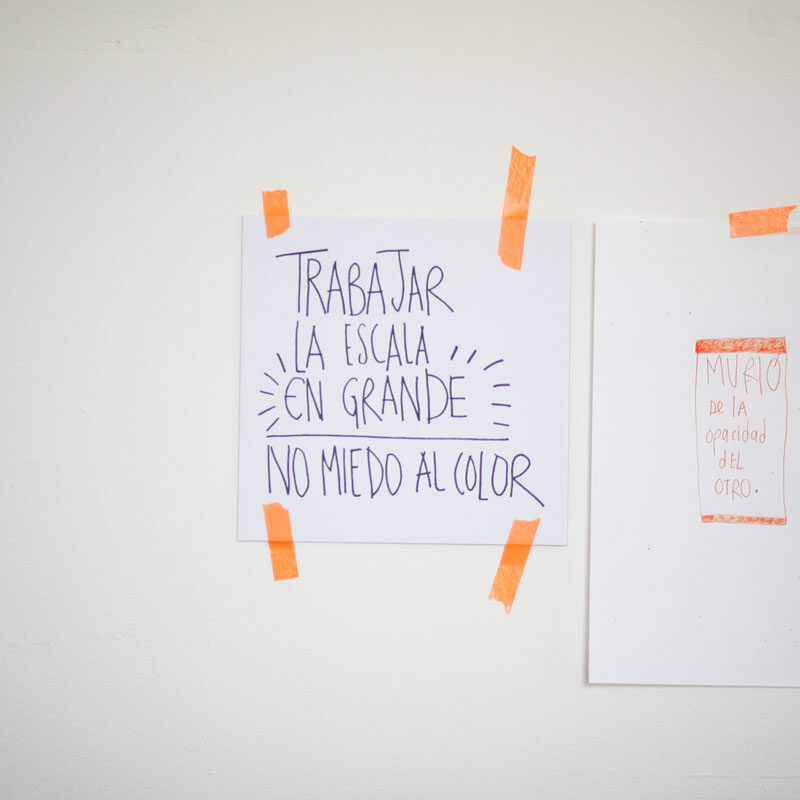 TRABAJAR
LA ESCALA
EN GRANDE
NO MIEDO AL COLOR
MURIO
De la
opacidad
dEL
OTRO.